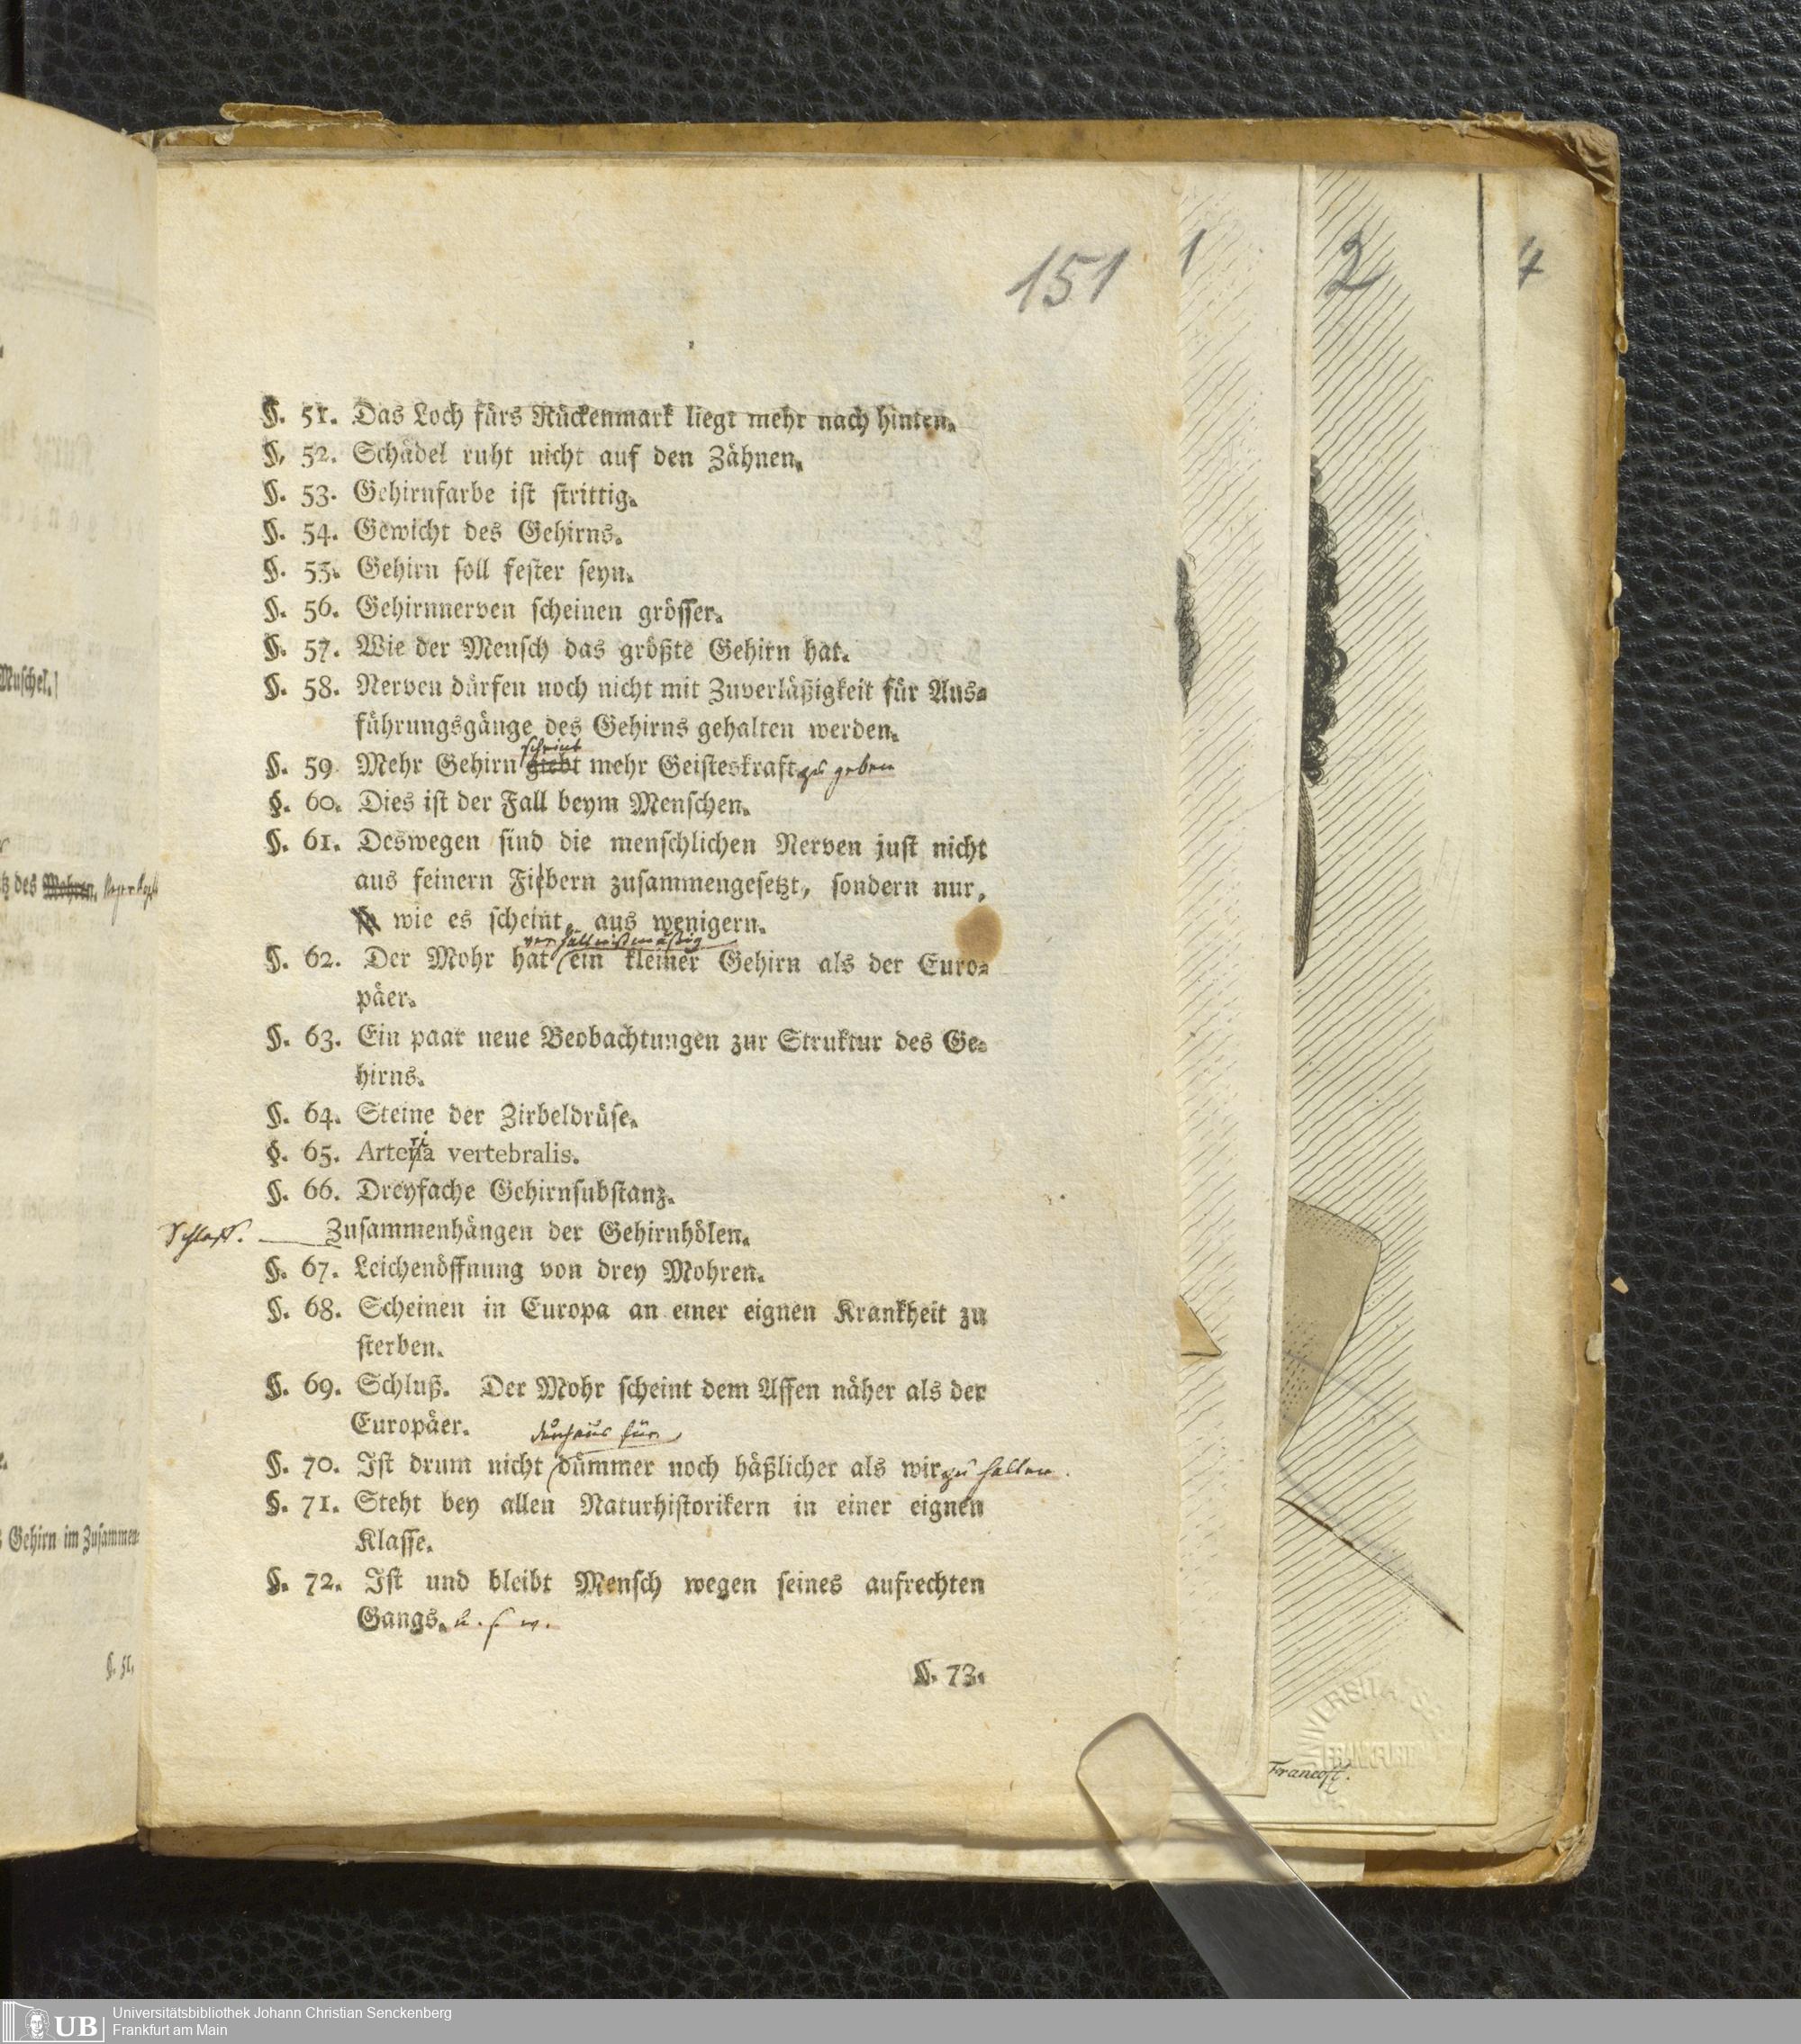 151
1
2
4
§. 51. Das Loch fürs Rückenmark liegt mehr nach hinten.
§. 52. Schädel ruht nicht auf den Zähnen.
§. 53. Gehirnfarbe ist strittig.
§. 54. Gewicht des Gehirns.
§. 55. Gehirn soll fester seyn.
§. 56. Gehirnnerven scheinen grösser.
§. 57. Wie der Mensch das größte Gehirn hat.
§. 58. Nerven dürfen noch nicht mit Zuverläßigkeit für Aus-
führungsgänge des Gehirns gehalten werden.
scheint
§. 59 Mehr Gehirn giebt mehr Geisteskraft zu geben
§. 60. Dies ist der Fall beym Menschen.
§. 61. Deswegen sind die menschlichen Nerven just nicht
aus feinern Fiebern zusammengesetzt, sondern nur,
wie es scheint, aus wenigern.
verhältnißmäßig
§. 62. Der Mohr hat ein kleiner Gehirn als der Euro-
päer.
§. 63. Ein paar neue Beobachtungen zur Struktur des Ge-
hirns.
§. 64. Steine der Zirbeldrüse.
ri
§. 65. Artena vertebralis.
§. 66. Dreyfache Gehirnsubstanz.
Zusammenhängen der Gehirnhölen.
§. 67. Leichenöffnung von drey Mohren.
§. 68. Scheinen in Europa an einer eignen Krankheit zu
sterben.
§. 69. Schluß. Der Mohr scheint dem Affen näher als der
Europäer.
durchaus für
§. 70. Ist drum nicht dümmer noch häßlicher als wir zu halten.
§. 71. Steht bey allen Naturhistorikern in einer eignen
Klasse.
§. 72. Ist und bleibt Mensch wegen seines aufrechten
Gangs. u. s. w.
§. 73.
Muschel.
des Mohren.
Gehirn im Zusammen-
§. 51.
Francoft.
FRANKFURT
UB
Universitätsbibliothek Johann Christian Senckenberg
Frankfurt am Main